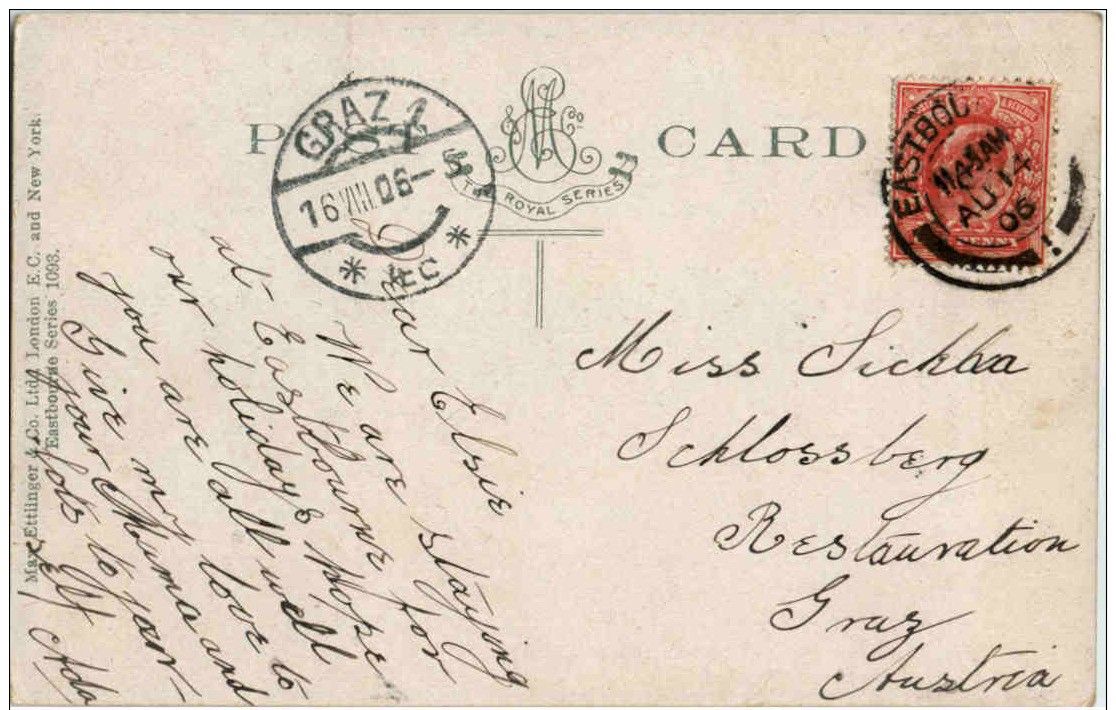 POST CARD
THE ROYAL SERIES
GRAZ 1
16 VIII 06
EASTBOU
11.45AM
AU 14
06
PENNY
Max Ettlinger & Co. Ltd. London E.C. and New York.
Eastbourne Series 1093.
Dear Elsie
We are staying
at Eastbourne for
our holidays hope
you are all well
Give my love to
your Mama and
lots to your-
self Ada
Miss
Schlossberg
Restauration
Graz
Austria